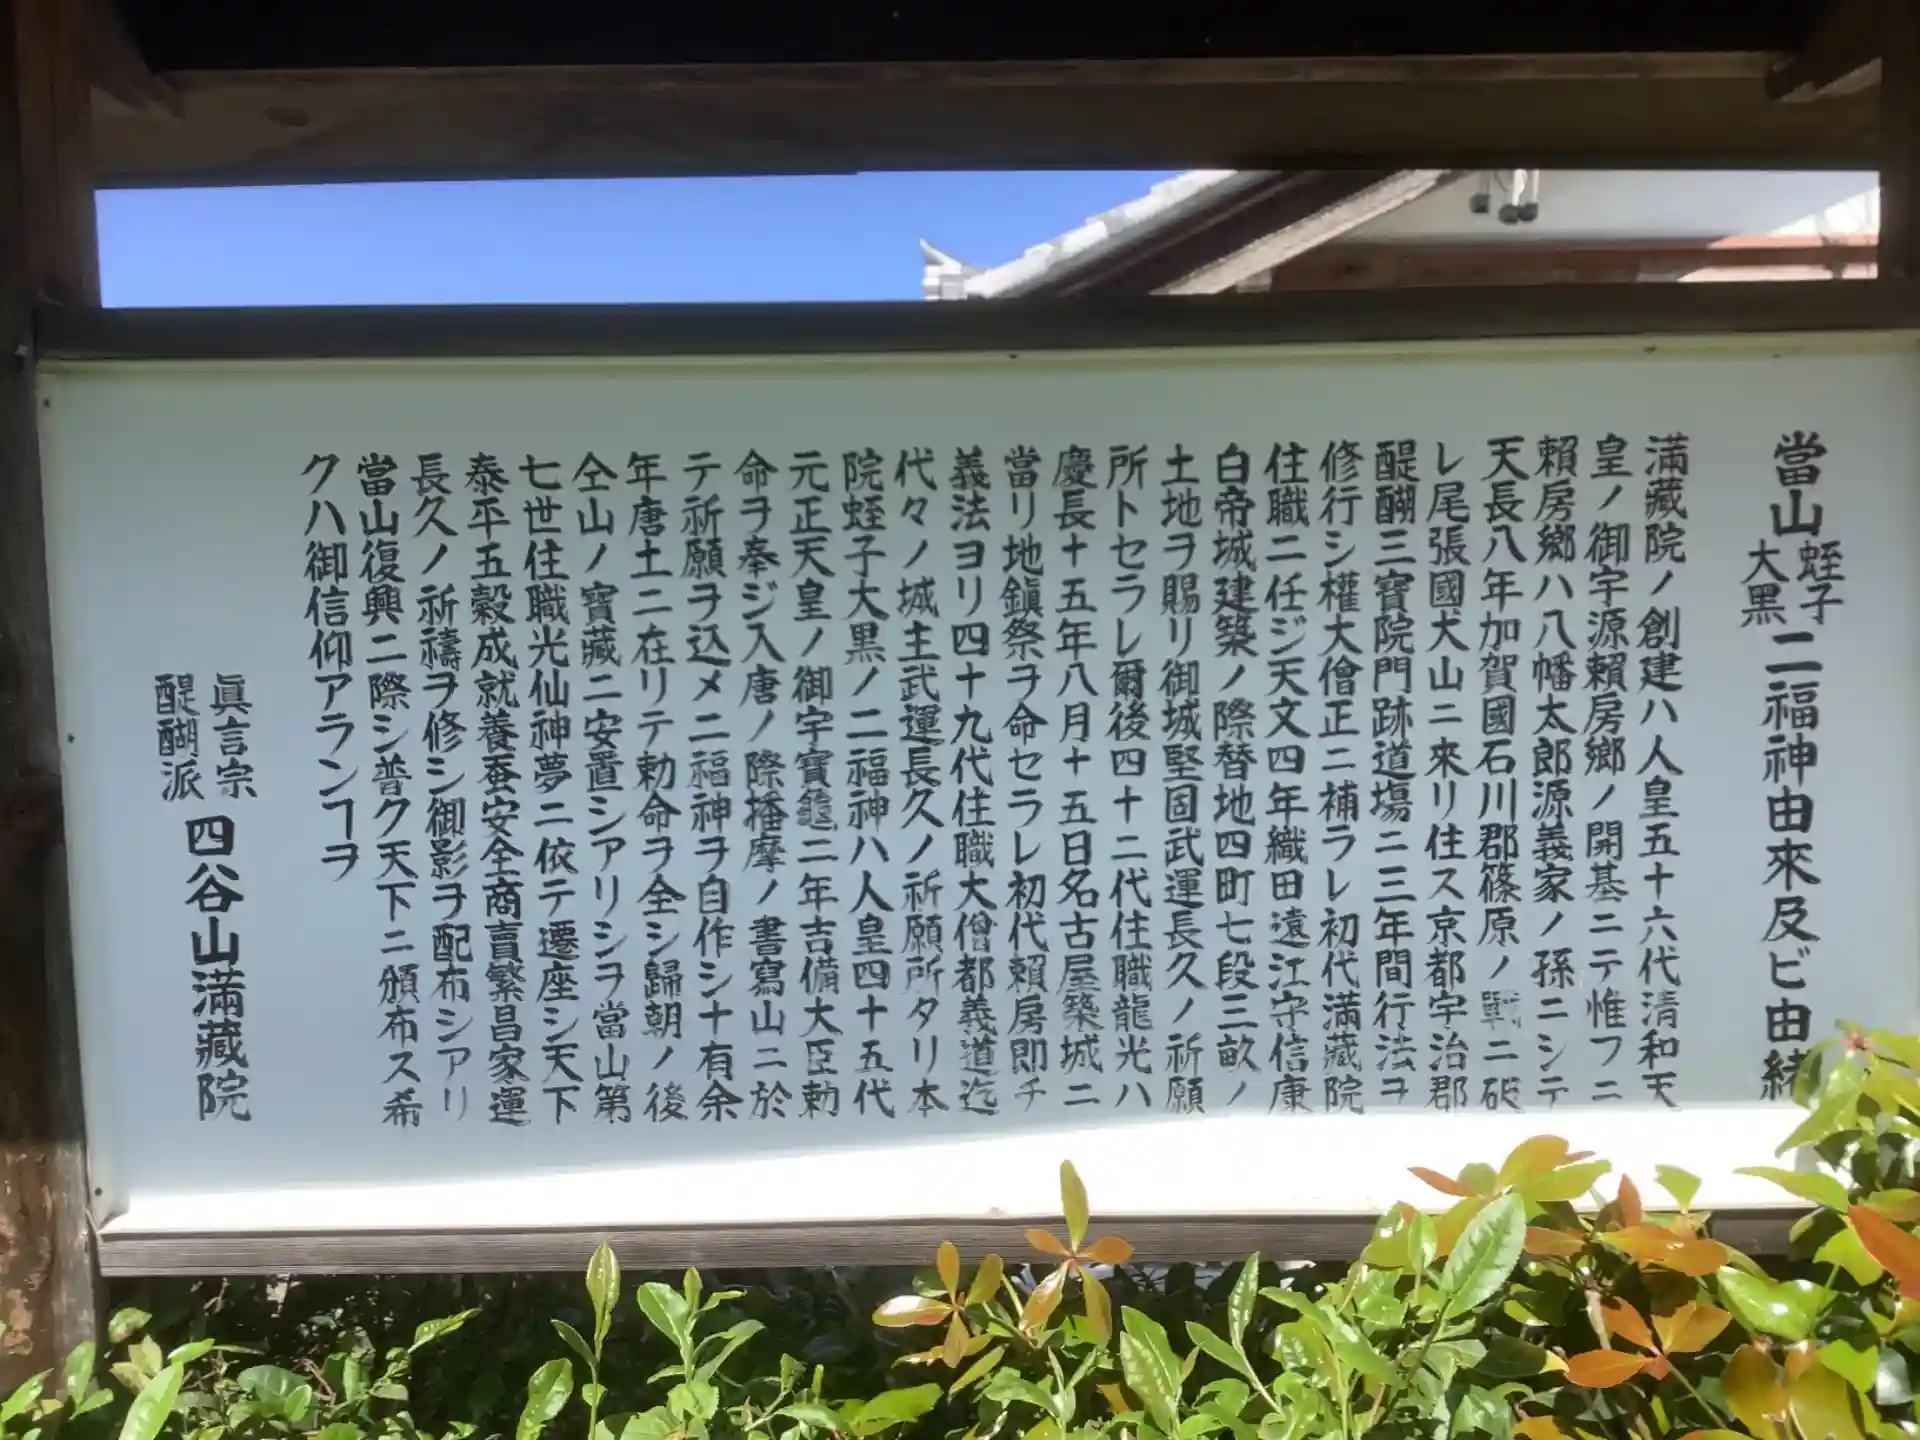 當山蛭子大黒二福神由來及ビ由緒
満藏院ノ創建ハ人皇五十六代清和天
皇ノ御宇源賴房郷ノ開基ニテ惟フニ
賴房郷ハ八幡太郎源義家ノ孫ニシテ
天長八年加賀國石川郡篠原ノ戰ニ破
レ尾張國犬山ニ來リ住ス京都宇治郡
醍醐三寶院門跡道塲ニ三年間行法ヲ
修行シ權大僧正ニ補ラレ初代満藏院
住職ニ任ジ天文四年織田遠江守信康
白帝城建築ノ際替地四町七段三畝ノ
土地ヲ賜リ御城堅固武運長久ノ祈願
所トセラレ爾後四十二代住職龍光ハ
慶長十五年八月十五日名古屋築城ニ
當リ地鎭祭ヲ命セラレ初代賴房即チ
義法ヨリ四十九代住職大僧都義道迄
代々ノ城主武運長久ノ祈願所タリ本
院蛭子大黒ノ二福神ハ人皇四十五代
元正天皇ノ御宇寶龜二年吉備大臣勅
命ヲ奉ジ入唐ノ際播摩ノ書寫山ニ於
テ祈願ヲ込メ二福神ヲ自作シ十有余
年唐土ニ在リテ勅命ヲ全シ歸朝ノ後
仝山ノ寶藏ニ安置シアリシヲ當山第
七世住職光仙神夢ニ依テ遷座シ天下
泰平五穀成就養蚕安全商賣繁昌家運
長久ノ祈禱ヲ修シ御影ヲ配布シアリ
當山復興ニ際シ普ク天下ニ頒布ス希
クハ御信仰アランヿヲ
眞言宗醍醐派 四谷山満藏院